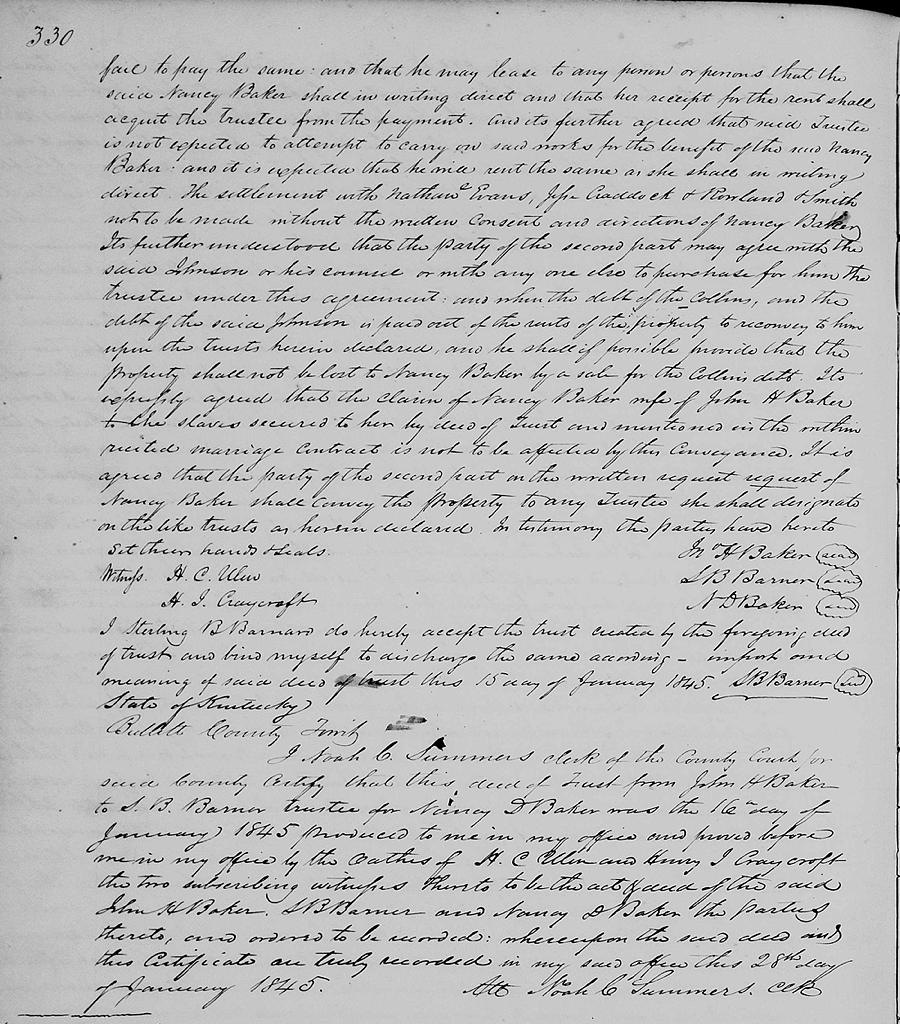 330
fail to pay the same: and that he may lease to any person or persons that the
said Nancy Baker shall in writing direct and that her receipt for the rent shall
acquit the trustee from the payment. and its further agreed that said Trustee
is not expected to attempt to carry on said works for the benefit of the said Nancy
Baker: and it is expected that he will rent the same as she shall in writing
direct. The settlement with Nathanl Evans, Jesse Craddock & Rowland & Smith
not to be made without the written consent and directions of Nancy Baker
Its further understood that the party of the second part may agree with the
said Johnson or his counsel or with any one else to purchase for him the
trustee under this agreement: and when the debt of the Collins, and the
debt of the said Johnson is paid out of the rents of the property to reconvey to him
upon the trusts herein declared, and he shall if possible provide that the
property shall not be lost to Nancy Baker by a sale for the Collins debt. Its
expressly agreed that the claim of Nancy Baker wife of John H Baker
to the slaves secured to her by deed of Trust and mentioned in the within
recited marriage contract is not to be affected by this conveyance. It is
agreed that the party of the second part on the written request request of
Nancy Baker shall convey the property to any Trustee she shall designate
on the like trusts as herein declared. In testimony the parties have hereto
set their hands & seals. Jno H Baker (seal)
Witness. H. C. Ulen S B Barner (seal)
H. J. Craycroft N D Baker (seal)
I Sterling B Barnard do hereby accept the trust created by the foregoing deed
of trust and bind myself to discharge the same according - import and
meaning of said deed of trust this 15 day of January 1845. S B Barner (seal)
State of Kentucky
Bullitt County
I Noah C. Summers clerk of the County Court for
said County Certify that this deed of Trust from John H Baker
to S. B. Barner trustee for Nancy D Baker was the 16th day of
January 1845 produced to me in my office and proved before
me in my office by the oathes of H. C Ulen and Henry J Craycroft
the two subscribing witnesses thereto to be the act & deed of the said
John H Baker. S B Barner and Nancy D Baker the parties
thereto, and ordered to be recorded: whereupon the said deed and
this Certificate are truly recorded in my said office this 28th day
of January 1845. Att Noah C Summers. Clk